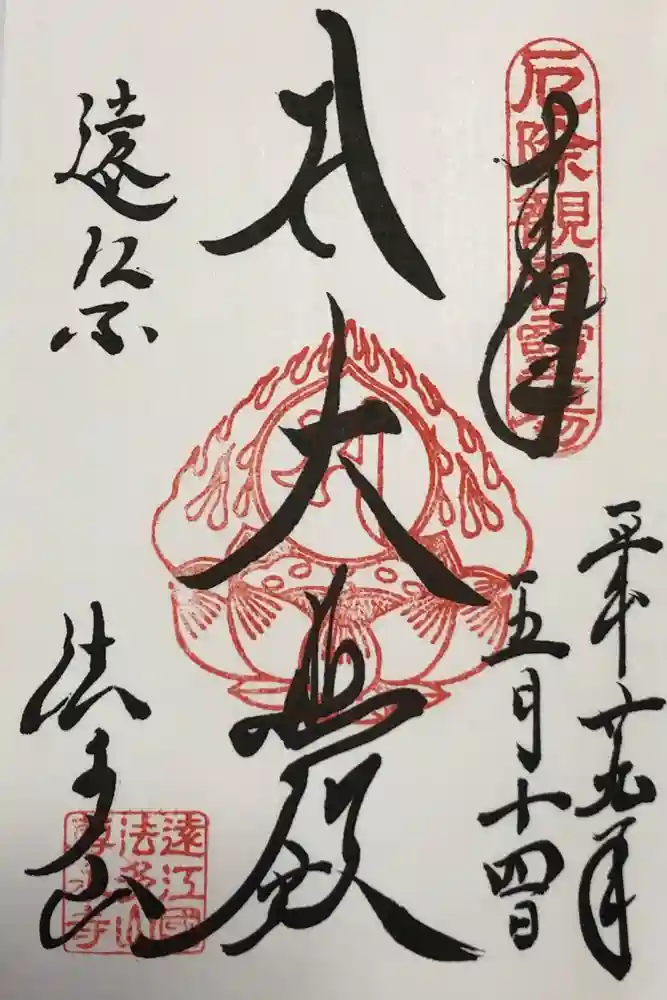 奉拝
厄除観音霊場
平成廿九年
五月十四日
大悲殿
遠江
法多山
遠江國
法多山
尊永寺